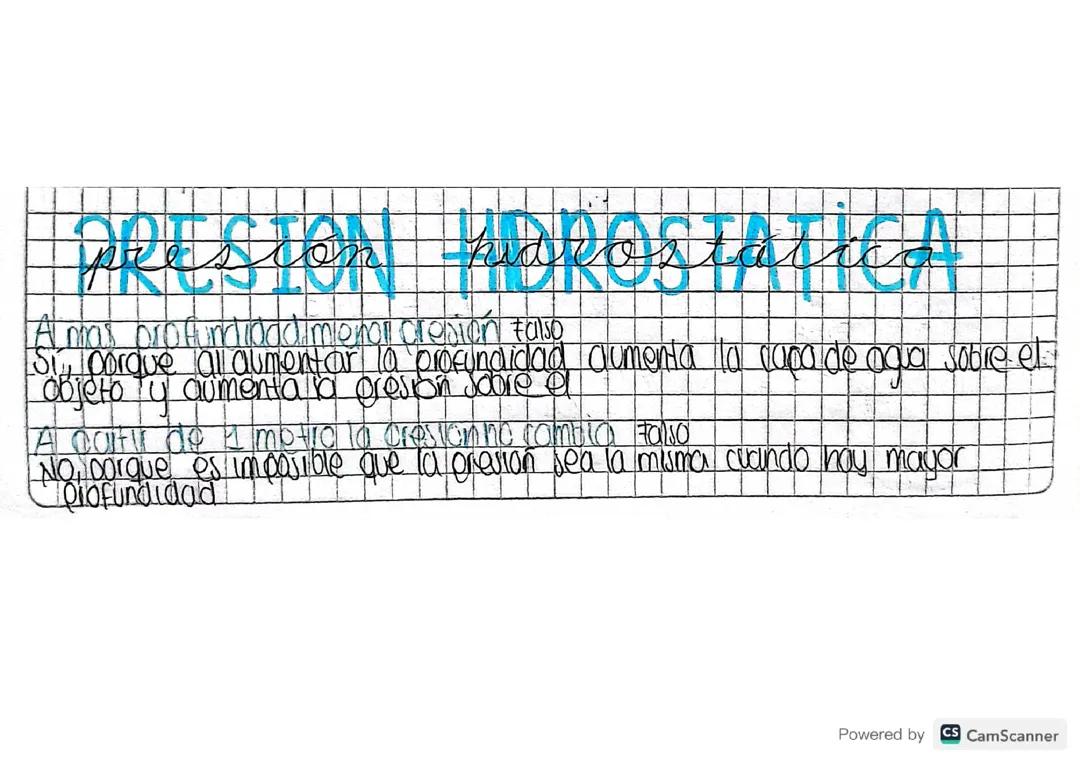 PRESION HIDROSTATICA
presión hidrostática
A mas profundidad menor presión Falso
Sí, porque al aumentar la profundidad aumenta la capa de agua sobre el
objeto y aumenta la presión sobre el
A partir de 1 metro la presion no cambia Falso
No, porque es imposible que la presion sea la misma cuando hay mayor
profundidad
Powered by CS CamScanner